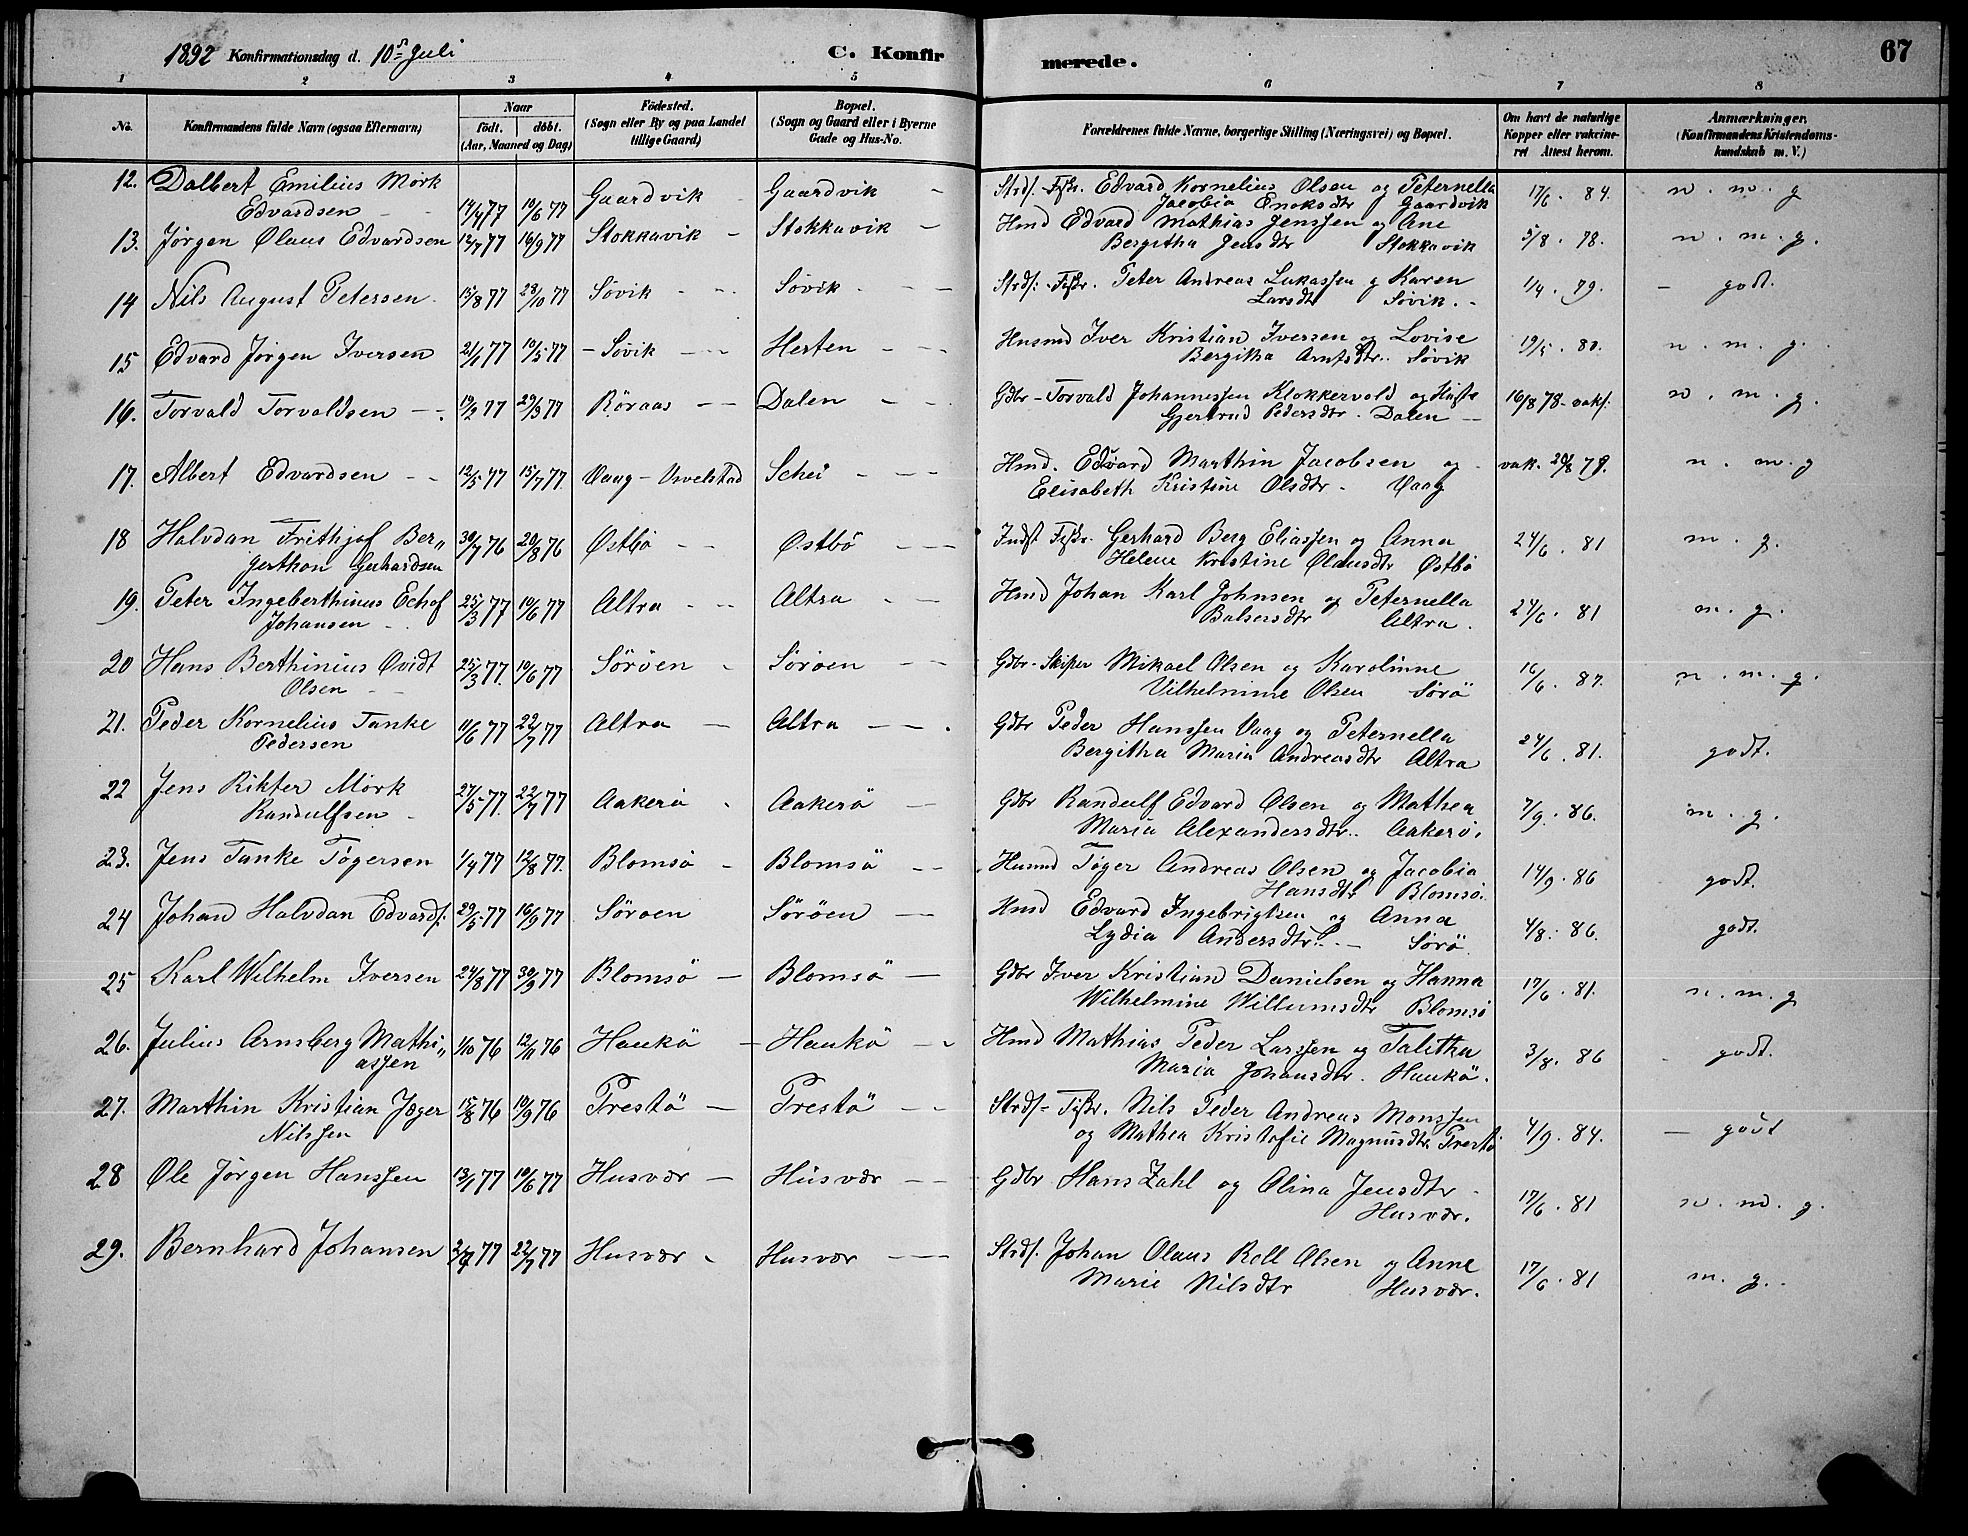 1892 Konfirmationsdag d. 10de Juli C. Konfir merede. 67
1 2 3 4 5 6 7 8
No. Konfirmandens fulde Navn (ogsaa Efternavn) Naar födt. döbt. (Aar, Maaned og Dag) Födested. (Sogn eller By og paa Landet tillige Gaard) Bopæl. (Sogn og Gaard eller i Byerne Gade og Hus-No. Forældrenes fulde Navne, borgerlige Stilling (Næringsvei) og Bopæl. Om havt de naturlige Kopper eller vakcineret Attest herom. Anmærkninger. (Konfirmandens Kristendomskundskab m. V.)
12. Dalbert Emilius Mörk 14/4 77 10/6 77 Gaardvik - Gaardvik - Strds.-Fisker. Edvard Kornelius Olsen og Peternella 17/6. 84. n. m. g
Edvardsen - Jacobia Enoksdtr Gaardvik
13. Jørgen Olaus Edvardsen 12/7 77 16/9 77 Stokkavik - Stokkavik - Hmd Edvard Mathias Jenssen og Ane 5/8. 78. n. m. g.
Bergitha Jensdtr Stokkavik
14 Nils August Petersen. 15/8 77 28/10 77 Søvik - - Søvik. - - Strds.-Fisker. Peter Andreas Lukassen og Karen 1/4. 79. - godt.
Larsdtr Søvik. -
15 Edvard Jørgen Iversen 21/1 77 10/5 77 - Søvik - - Herten - - Husmd Iver Kristian Iversen og Lovise 19/5. 80. n. m. g.
Bergitha Arntsdtr. Søvik
16. Torvald Torvaldsen - 19/2 77 29/3 77 Röraas - - Dalen - - Gdbr - Torvald Johannessen Klokkervold og Hustr 16/8 78 - vaks. n. m. g.
Gjertrud Pedersdtr. Dalen -
17. Albert Edvardsen - - 12/5 77 15/7 77. Vaag - Usvelstad Schei - - Hmd. Edvard Marthin Jacobsen og vak. 20/8 79. n. m. g
Elisabeth Kristine Olsdtr. Vaag
18 Halvdan Frithjof Ber„ 30/7 76 20/8 76 Østbö - - Østbö - - Indst Fisker. Gerhard Berg Eliassen og Anna 24/6. 81 m. g.
gerthon Gerhardsen Helene Kristine Olausdtr Østbö
19. Peter Ingeberthinus Echof 25/3 77 10/6 77 Altra - - Altra - - Hmd Johan Karl Johnsen og Peternella 24/6. 81 m. g.
Johansen - Balsersdtr Altra.
20 Hans Berthinius Ovidt 25/3 77. 10/6 77 Söröen - Söröen - - Gdbr - Skiper Mikael Olsen og Karolinne 16/6. 87. n. m. g.
Olsen - Vilhelmine Olsen Sørö
21. Peder Kornelius Tanke 11/6 77 22/7 77 Altra - Altra - - . Gdbr Peder Hanssen Vaag og Peternella 24/6. 81. godt.
Pedersen Bergitha Maria Andreasdtr Altra
22 Jens Rikter Mörk 27/5 77. 22/7 77 Aakerö - Aakerö - Gdbr Randulf Edvard Olsen og Mathea 7/9. 86. m. g.
Randulfsen - Maria Alexandersdtr. Aakerö.
23. Jens Tanke Tøgersen 1/4 77 12/8 77. Blomsö - Blomsö - - Husmd Tøger Andreas Olsen og Jacobia 14/9. 86 godt.
Hansdtr Blomsö.
24 Johan Halvdan Edvards. 29/5 77 16/9 77 Söröen Söröen - Hmd Edvard Ingebrigtsen og Anna 4/8. 86. godt.
Lydia Andersdtr. - Sörö
25 Karl Wilhelm Iversen 24/8 77 30/9 77 Blomsö - Blomsö - Gdbr Iver Kristian Danielsen og Hanna 17/6. 81. n. m. g
Wilhelmine Willumsdtr Blomsö
26. Julius Arnsberg Mathi„ 1/10 76 12/11 76 Haukö - Haukö - Hmd Mathias Peder Larssen og Talitha 3/8. 86 - godt.
assen Maria Johansdtr. Haukö.
27. Marthin Kristian Jæger 15/8 76 10/9 76 Prestö - Prestö - - Strds - Fisker. Nils Peder Andreas Monssen 4/9. 84. - godt
Nilssen og Mathea Kristofie Magnusdtr. Prestö
28 Ole Jørgen Hanssen 13/1 77 10/6 77 Husvær - Husvær - - Gdbr Hans Zahl og Olina Jensdtr - 17/6. 81 n. m. g.
Husvær.
29. Bernhard Johansen 2/4 77 22/7 77 Husvær - Husvær - - Strds. Johan Olaus Roll Olsen og Anne 17/6. 81 m. g. .
Marie Nilsdtr Husvær.